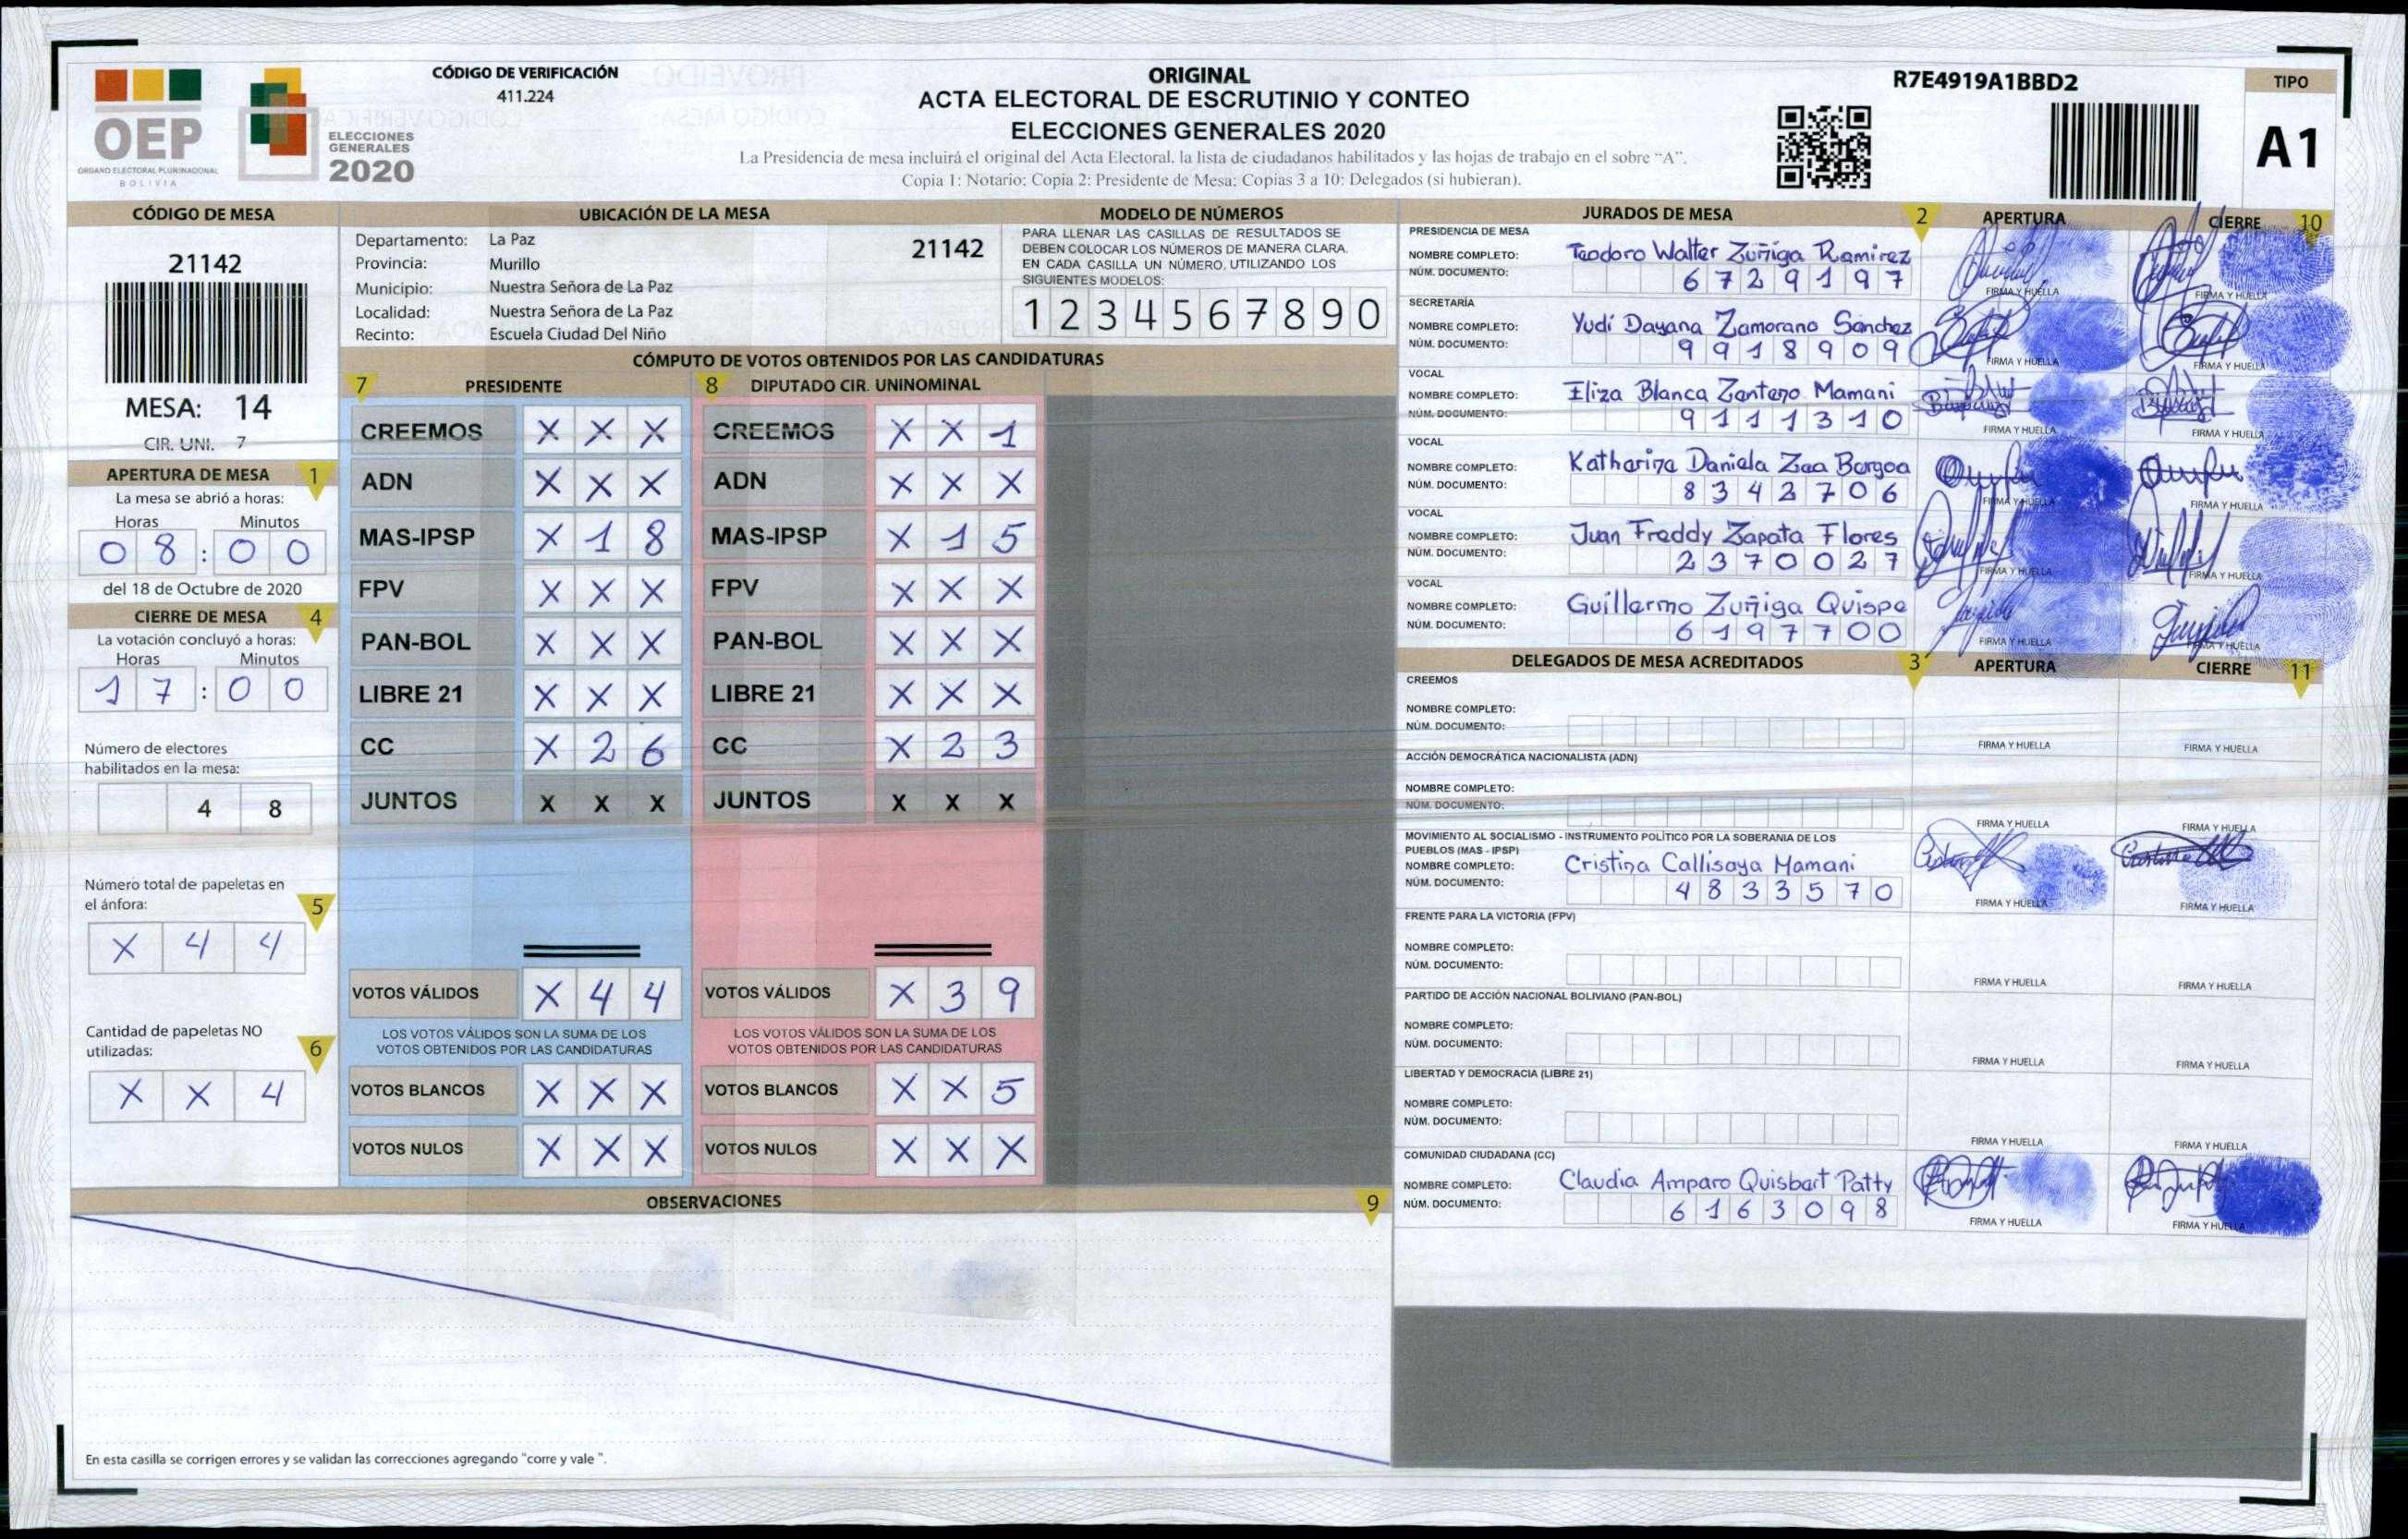 OEP
ORGANO ELECTORAL PLURINACIONAL
BOLIVIA
ELECCIONES
GENERALES
2020
CÓDIGO DE VERIFICACIÓN
411.224
ORIGINAL
ACTA ELECTORAL DE ESCRUTINIO Y CONTEO
ELECCIONES GENERALES 2020
La Presidencia de mesa incluirá el original del Acta Electoral, la lista de ciudadanos habilitados y las hojas de trabajo en el sobre "A".
Copia 1: Notario; Copia 2: Presidente de Mesa; Copias 3 a 10: Delegados (si hubieran).
R7E4919A1BBD2
TIPO
A1
CÓDIGO DE MESA
21142
MESA: 14
CIR. UNI. 7
APERTURA DE MESA 1
La mesa se abrió a horas:
Horas Minutos
0 8 : 0 0
del 18 de Octubre de 2020
CIERRE DE MESA 4
La votación concluyó a horas:
Horas Minutos
1 7 : 0 0
Número de electores
habilitados en la mesa:
4 8
Número total de papeletas en
el ánfora: 5
X 4 4
Cantidad de papeletas NO
utilizadas: 6
X X 4
UBICACIÓN DE LA MESA
Departamento: La Paz
Provincia: Murillo
Municipio: Nuestra Señora de La Paz
Localidad: Nuestra Señora de La Paz
Recinto: Escuela Ciudad Del Niño
21142
MODELO DE NÚMEROS
PARA LLENAR LAS CASILLAS DE RESULTADOS SE
DEBEN COLOCAR LOS NÚMEROS DE MANERA CLARA.
EN CADA CASILLA UN NÚMERO, UTILIZANDO LOS
SIGUIENTES MODELOS:
1 2 3 4 5 6 7 8 9 0
CÓMPUTO DE VOTOS OBTENIDOS POR LAS CANDIDATURAS
7 PRESIDENTE 8 DIPUTADO CIR. UNINOMINAL
CREEMOS X X X CREEMOS X X 1
ADN X X X ADN X X X
MAS-IPSP X 1 8 MAS-IPSP X 1 5
FPV X X X FPV X X X
PAN-BOL X X X PAN-BOL X X X
LIBRE 21 X X X LIBRE 21 X X X
CC X 2 6 CC X 2 3
JUNTOS X X X JUNTOS X X X
VOTOS VÁLIDOS X 4 4 VOTOS VÁLIDOS X 3 9
LOS VOTOS VÁLIDOS SON LA SUMA DE LOS LOS VOTOS VÁLIDOS SON LA SUMA DE LOS
VOTOS OBTENIDOS POR LAS CANDIDATURAS VOTOS OBTENIDOS POR LAS CANDIDATURAS
VOTOS BLANCOS X X X VOTOS BLANCOS X X 5
VOTOS NULOS X X X VOTOS NULOS X X X
OBSERVACIONES 9
En esta casilla se corrigen errores y se validan las correcciones agregando "corre y vale ".
JURADOS DE MESA 2 APERTURA CIERRE 10
PRESIDENCIA DE MESA
NOMBRE COMPLETO: Teodoro Walter Zuñiga Ramirez
NÚM. DOCUMENTO: 6 7 2 9 1 9 7
FIRMA Y HUELLA FIRMA Y HUELLA
SECRETARÍA
NOMBRE COMPLETO: Yudi Dayana Zamorano Sanchez
NÚM. DOCUMENTO: 9 9 1 8 9 0 9
FIRMA Y HUELLA FIRMA Y HUELLA
VOCAL
NOMBRE COMPLETO: Eliza Blanca Zenteno Mamani
NÚM. DOCUMENTO: 9 1 1 1 3 1 0
FIRMA Y HUELLA FIRMA Y HUELLA
VOCAL
NOMBRE COMPLETO: Katherine Daniela Zea Bergoa
NÚM. DOCUMENTO: 8 3 4 2 7 0 6
FIRMA Y HUELLA FIRMA Y HUELLA
VOCAL
NOMBRE COMPLETO: Juan Freddy Zapata Flores
NÚM. DOCUMENTO: 2 3 7 0 0 2 7
FIRMA Y HUELLA FIRMA Y HUELLA
VOCAL
NOMBRE COMPLETO: Guillermo Zuñiga Quispe
NÚM. DOCUMENTO: 6 1 9 7 7 0 0
FIRMA Y HUELLA FIRMA Y HUELLA
DELEGADOS DE MESA ACREDITADOS 3 APERTURA CIERRE 11
CREEMOS
NOMBRE COMPLETO:
NÚM. DOCUMENTO:
FIRMA Y HUELLA FIRMA Y HUELLA
ACCIÓN DEMOCRÁTICA NACIONALISTA (ADN)
NOMBRE COMPLETO:
NÚM. DOCUMENTO:
FIRMA Y HUELLA FIRMA Y HUELLA
MOVIMIENTO AL SOCIALISMO - INSTRUMENTO POLÍTICO POR LA SOBERANIA DE LOS
PUEBLOS (MAS - IPSP)
NOMBRE COMPLETO: Cristina Callisaya Mamani
NÚM. DOCUMENTO: 4 8 3 3 5 7 0
FIRMA Y HUELLA FIRMA Y HUELLA
FRENTE PARA LA VICTORIA (FPV)
NOMBRE COMPLETO:
NÚM. DOCUMENTO:
FIRMA Y HUELLA FIRMA Y HUELLA
PARTIDO DE ACCIÓN NACIONAL BOLIVIANO (PAN-BOL)
NOMBRE COMPLETO:
NÚM. DOCUMENTO:
FIRMA Y HUELLA FIRMA Y HUELLA
LIBERTAD Y DEMOCRACIA (LIBRE 21)
NOMBRE COMPLETO:
NÚM. DOCUMENTO:
FIRMA Y HUELLA FIRMA Y HUELLA
COMUNIDAD CIUDADANA (CC)
NOMBRE COMPLETO: Claudia Amparo Quisbert Patty
NÚM. DOCUMENTO: 6 1 6 3 0 9 8
FIRMA Y HUELLA FIRMA Y HUELLA